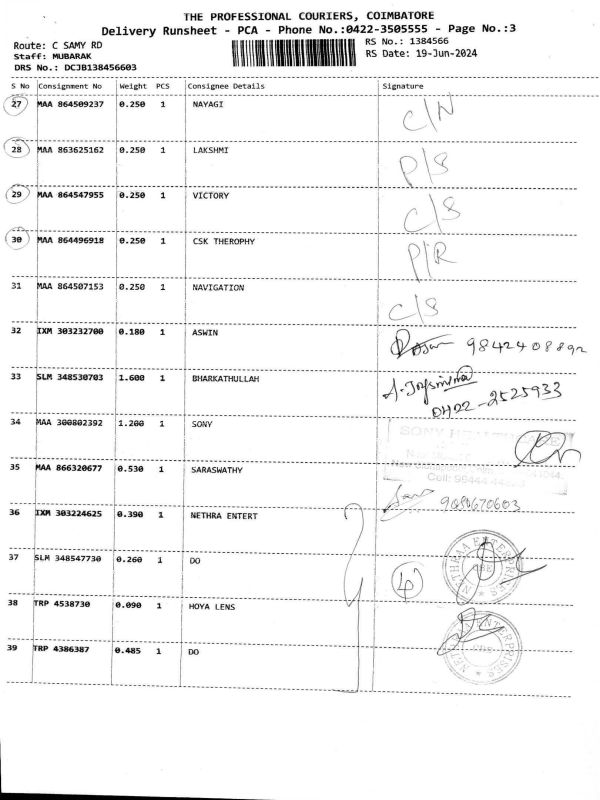 THE PROFESSIONAL COURIERS, COIMBATORE
Delivery Runsheet - PCA - Phone No.:0422-3505555 - Page No.:3
Route: C SAMY RD
RS No.: 1384566
Staff: MUBARAK
RS Date: 19-Jun-2024
DRS No.: DCJB138456603
S No Consignment No Weight PCS Consignee Details Signature
27 MAA 864509237 0.250 1 NAYAGI C/N
28 MAA 863625162 0.250 1 LAKSHMI P/S
29 MAA 864547955 0.250 1 VICTORY C/S
30 MAA 864496918 0.250 1 CSK THEROPHY P/R
31 MAA 864507153 0.250 1 NAVIGATION C/S
32 IXM 303232700 0.180 1 ASWIN 9842408892
33 SLM 348530703 1.600 1 BHARKATHULLAH
0422-2525933
34 MAA 300802392 1.200 1 SONY
SONY
Cell: 99444
35 MAA 866320677 0.530 1 SARASWATHY
36 IXM 303224625 0.390 1 NETHRA ENTERT
37 SLM 348547730 0.260 1 DO 4
NETHRAA ENTERPRISES
CBE
38 TRP 4538730 0.090 1 HOYA LENS
39 TRP 4386387 0.485 1 DO
ENTERPRISES